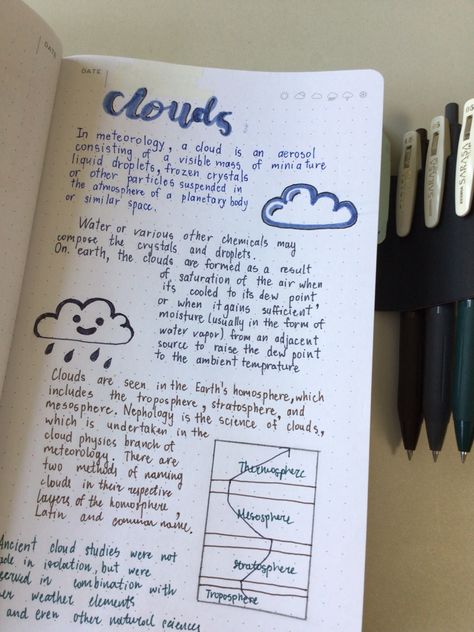 DATE
DATE
clouds
In meteorology, a cloud is an aerosol
consisting of a visible mass of miniature
liquid droplets, frozen crystals
or other particles suspended in
the atmosphere of a planetary body
or similar space.
Water or various other chemicals may
compose the crystals and droplets.
On earth, the clouds are formed as a result
of saturation of the air when
its cooled to its dew point,
or when it gains sufficient
moisture (usually in the form of
water vapor) from an adjacent
source to raise the dew point
to the ambient temprature
Clouds are seen in the Earth's homosphere, which
includes the troposphere, stratosphere, and
mesosphere. Nephology is the science of clouds,
which is undertaken in the
cloud physics branch of
meteorology. There are
two methods of naming
clouds in their repective
layers of the homosphere,
Latin and common name.
Thermosphere
Mesosphere
Stratosphere
Troposphere
Ancient cloud studies were not
in isolation, but were
in combination with
weather elements
and even other natural sciences
SARASA
SARASA